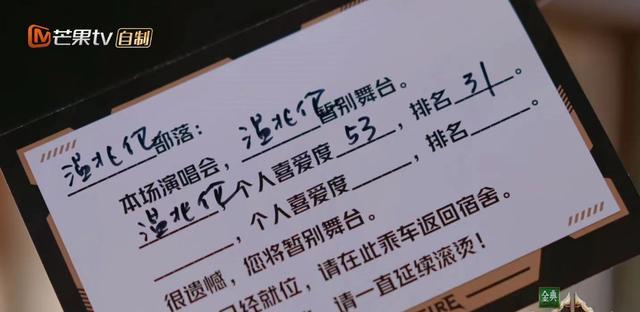 芒果tv 自制
温兆伦部落：
本场演唱会，温兆伦暂别舞台。
温兆伦，个人喜爱度53，排名31。
，个人喜爱度，排名。
很遗憾，您将暂别舞台。
已经就位，请在此乘车返回宿舍。
，请一直延续滚烫！
FIRE
金典